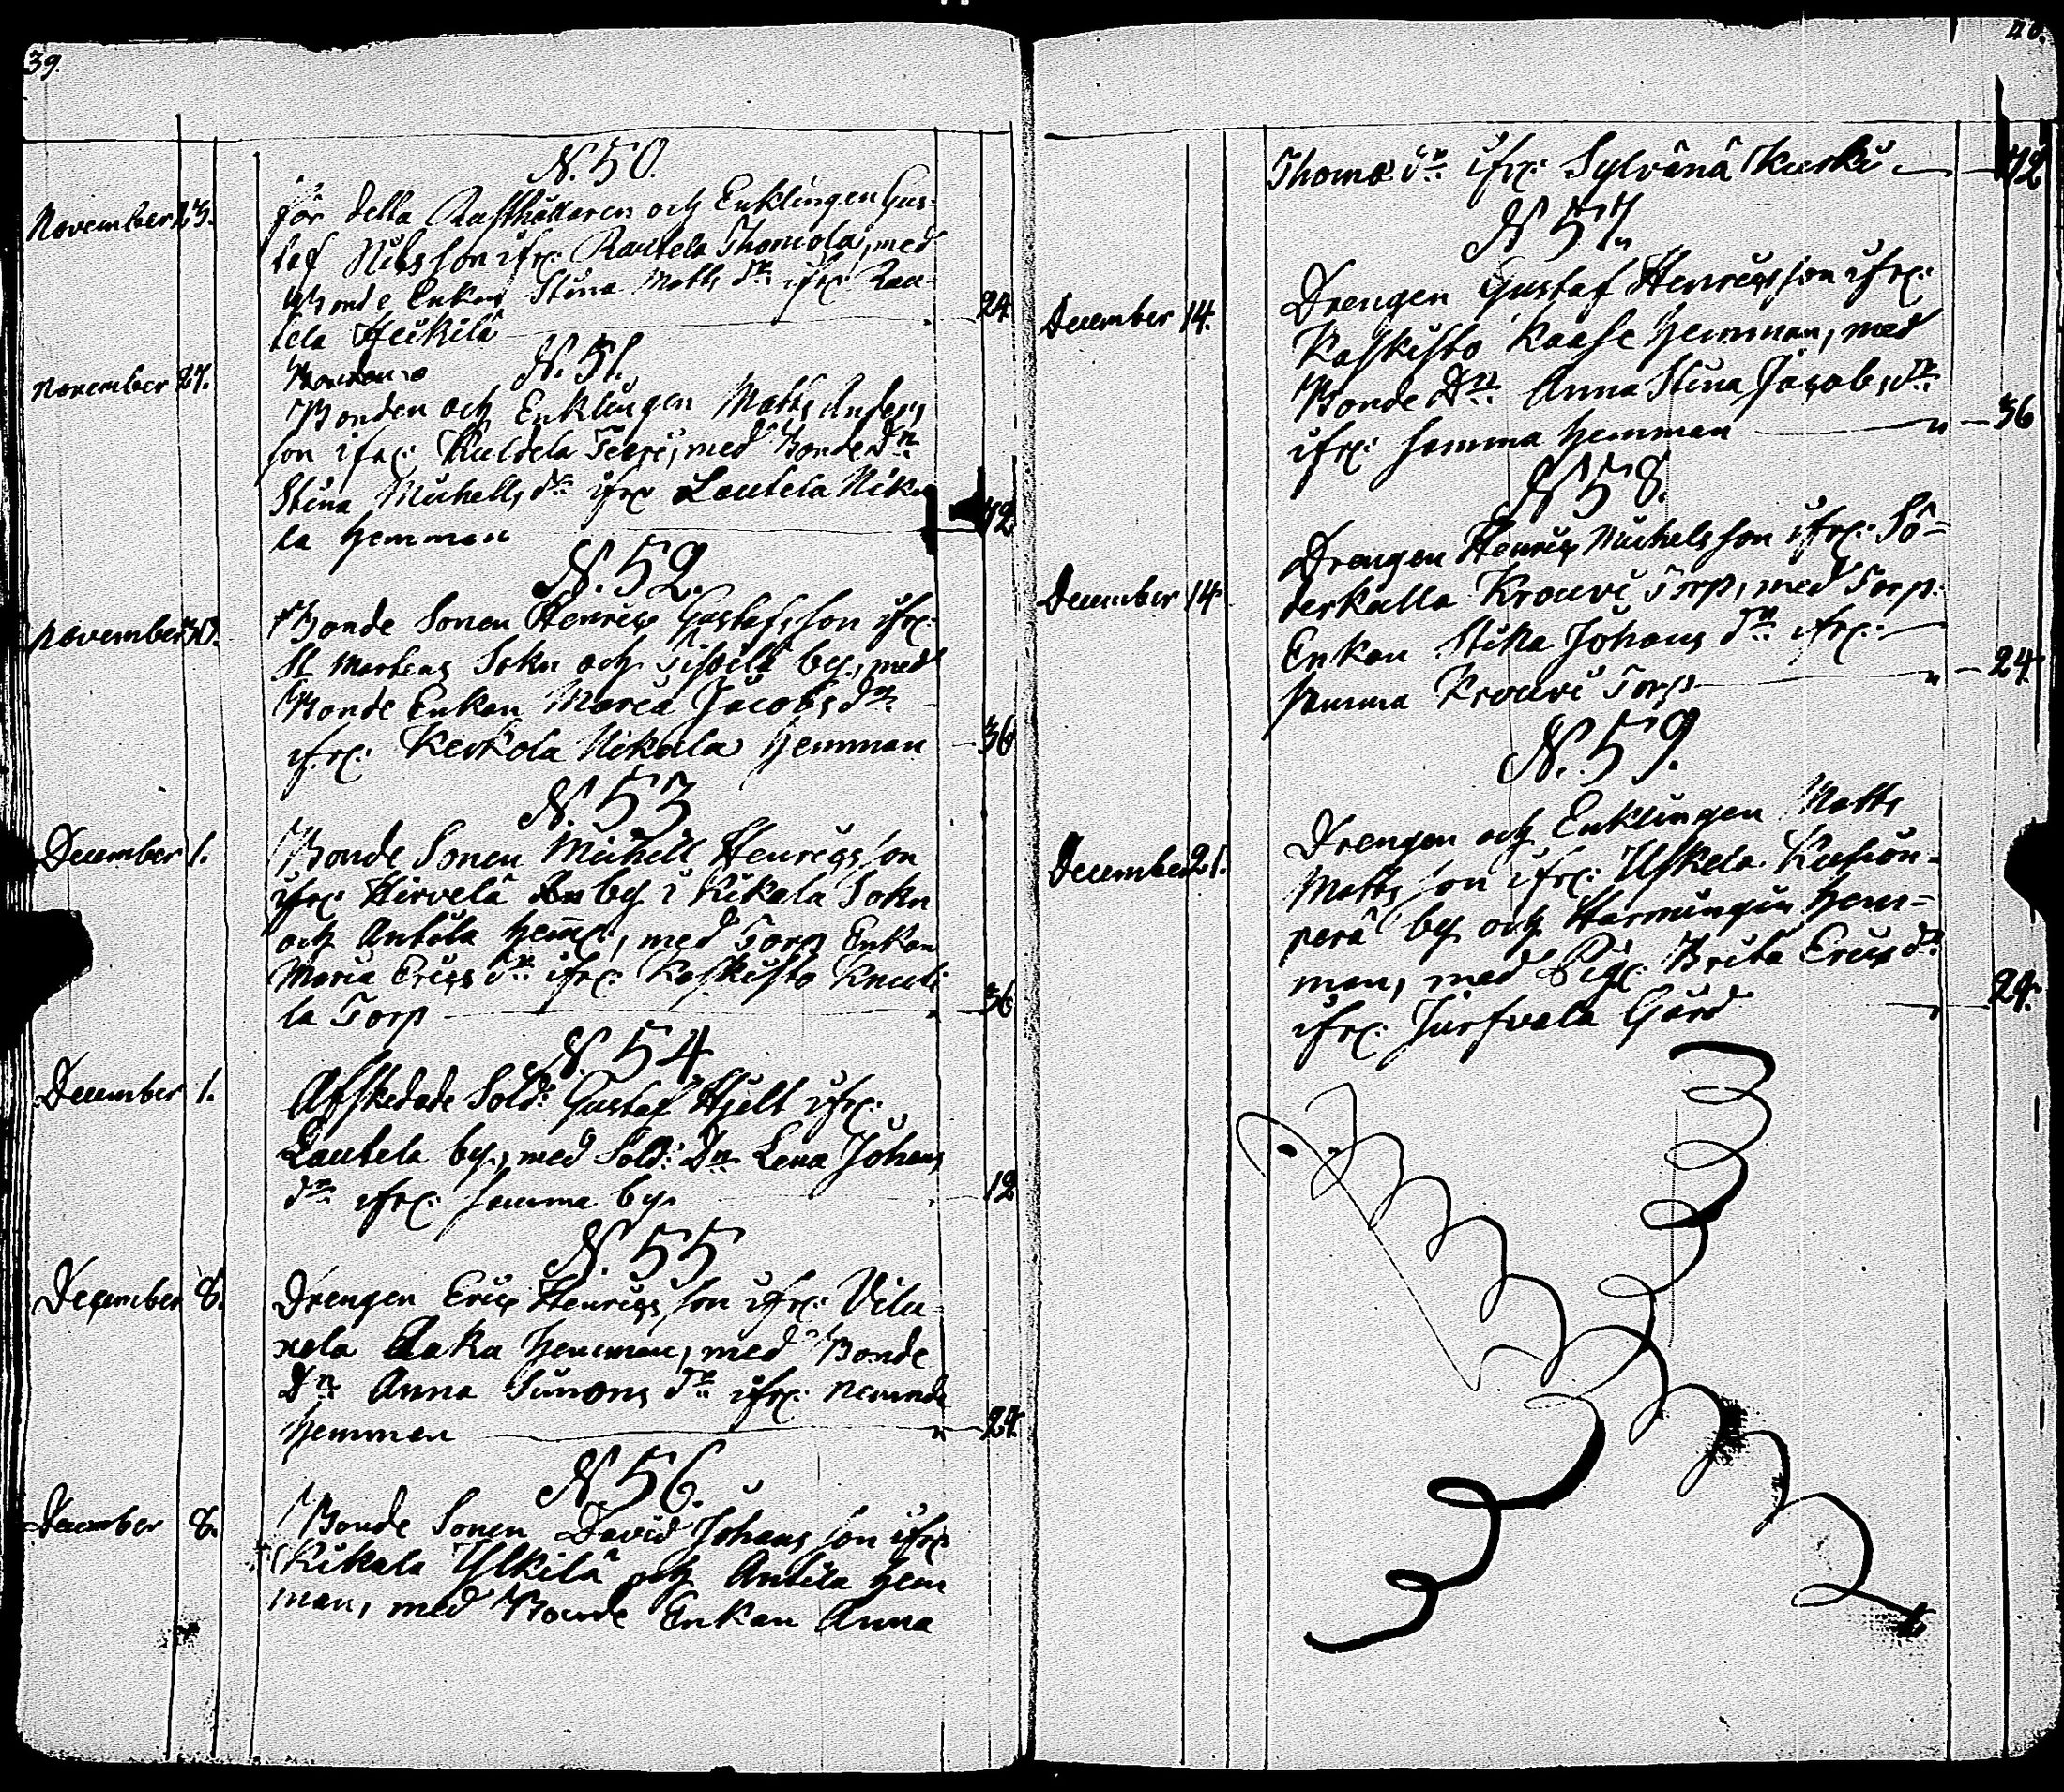 39.
N. 50.
November 23. För detta Rusthållaren och Enklingen Gus-
taf Nilsson ifr: Rautela Thomola, med
Bonde Enkan Stina Matts dr. ifr: Rau-
tela Heikilä 24
November 27. N. 51.
Bonden och Enklingen Matts Anders
son ifr: Kuldela Seppi, med Bonde Dn
Stina Michells dr. ifr: Lautela Niku
la Hemman 72
N. 52.
November 30. Bonde Sonen Henric Gustafsson ifr:
St Martens Sokn och by, med
Bonde Enkan Maria Jacobs dr.
ifr: Kerkola Nikula Hemman 36
N. 53
December 1. Bonde Sonen Michell Henricsson
ifr: Hirvelä by i Kikala Sokn
och Antila hem:, med Torp Enkan
Maria Erics dr. ifr: Koskisto Knuti
la Torp 36
N. 54
December 1. Afskedade Sold: Gustaf Hjelt ifr:
Lautela by, med Sold: Dn Lena Johans
dr. ifr: samma by 12
N. 55
December 8. Drengen Eric Henricsson ifr: Vilu-
xela Hemman, med Bonde
Dn Anna Simons dr. ifr: nemnde
Hemman 24
N 56.
December 8. Bonde Sonen David Johansson ifr:
Kikala Ylkilä och Antila hem
man, med Bonde Enkan Anna
40.
Thomæ dr. ifr: Sylvänä Kurki 72
N 57.
December 14. Drengen Gustaf Henricsson ifr:
Koskisto Kaase Hemman, med
Bonde Dn. Anna Stina Jacobs dr.
ifr: samma hemman 36
N 58.
December 14. Drengen Henric Michelsson ifr: Sö-
derkulla Krouvi Torp, med Torp.
Enkan Stina Johans dr. ifr:
samma Krouvi Torp 24.
N. 59.
December 21. Drengen och Enklingen Matts
Mattsson ifr: Uskela Kaujon-
perä by och Hem-
man, med Pig: Brita Erics dr.
ifr: Gård 24.